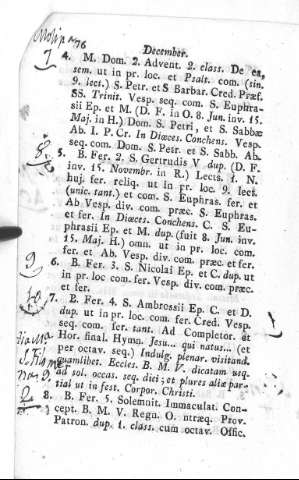 December.
4. M. Dom. 2. Advent. 2. class. De ea,
sem. ut in pr. loc. et Psalt. com. (sin.
9. lect.) S. Petr. et S. Barbar. Cred. Præf.
SS. Trinit. Vesp. seq. com. S. Euphra-
sii Ep. et M. (D. F. in O. 8. Jun. inv. 15.
Maj. in H.) Dom. S. Petri, et S. Sabbæ
Ab. I. P. Cr. In Diœces. Conchens. Vesp.
seq. com. Dom. S. Petr. et S. Sabb. Ab.
5. B. Fer. 2. S. Gertrudis V dup. (D. F.
inv. 15. Novembr. in R.) Lects. 1. N.
huj. fer. reliq. ut in pr. loc. 9. lect.
(unic. tant.) et com. S. Euphras. fer. et
Ab Vesp. div. com. præc. S. Euphras.
et fer. In Diœces. Conchens. C. S. Eu-
phrasii Ep. et M. dup. (fuit 8. Jun. inv.
15. Maj. H.) omn. ut in pr. loc. com.
fer. et Ab. Vesp. div. com. præc. et fer.
6. B. Fer. 3. S. Nicolai Ep. et C. dup. ut
in pr. loc com. fer. Vesp. div. com. præc.
et fer.
7. B. Fer. 4. S. Ambrossii Ep. C. et D.
dup. ut in pr. loc. com. fer. Cred. Vesp.
seq. com. fer. tant. Ad Completor. et
Hor. final. Hymn. Jesu... qui natus... (et
per octav. seq.) Indulg. plenar. visitand.
quamlibet. Eccles. B. M. V. dicatam usq.
ad sol. occas. seq. diei; et plures aliæ par-
tial ut in fest. Corpor. Christi.
8. B. Fer. 5. Solemnit. Immaculat. Con-
cept. B. M. V. Regn. O. ntræq. Prov.
Patron. dup. 1. class. cum octav. Offic.